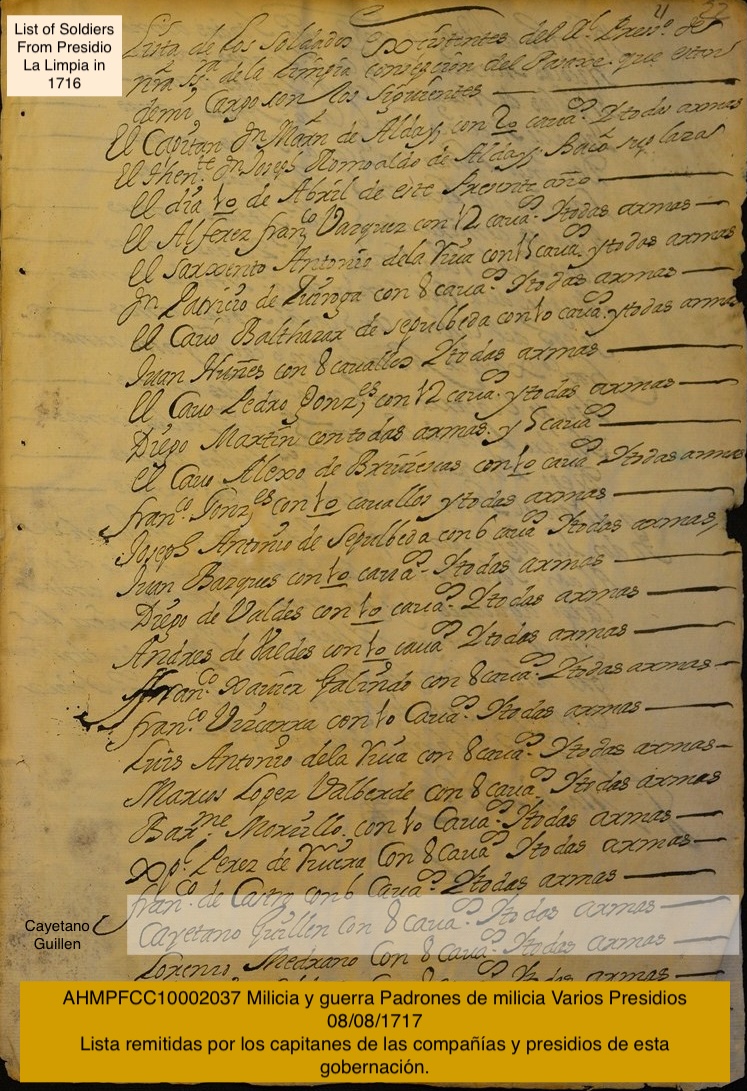 List of Soldiers
From Presidio
La Limpia in
1716
4 32
Lista de los Soldados Existentes del Rl. Press.o de
nra. Sa. de la Limpia consepcion del Pasaxe que estan
demi Cargo son los siguientes
El Capitan Dn Maãn de Aldas, con 20 caua.os Y todas armas
El Thente Dn Joseph Romoaldo de Aldas, su plasa
El dia 10 de Abril de este Presente año
El Alferez franco Vazquez con 12 caua.os Ytodas armas
El Sarxento Antonio dela Riua con 15 caua.os ytodas armas
Dn Patricio de Quiroga con 8 caua.os Ytodas armas
El Cauo Balthazar de sepulbeda con 10 caua.os ytodas armas
Juan Nuñes con 8 cauallos Ytodas armas
El Cauo Pedro Gonzes, con 12 caua.os ytodas armas
Diego Martin con todas armas. y 5 caua.os
El Cauo Alexo de con 10 caua.os Ytodas armas
franco. Gonzes con 10 cauallos ytodas armas
Joseph Antonio de Sepulbeda con 6 caua.os Ytodas armas,
Juan Bazques con 10 caua.os Ytodas armas
Diego de Valdes con 10 caua.os Ytodas armas
Andres de Valdes con 10 caua.os Ytodas armas
Franco. Xauier Galindo con 8 caua.os Ytodas armas
franco. Vizcarra con 10 Caua.os Ytodas armas
Luis Antonio dela Riua con 8 caua.os Ytodas armas
Marcos Lopez Valberde con 8 caua.os Ytodas armas
Barme Morillo. con 10 Caua.os Ytodas armas
Xpl. Perez de Riuera Con 8 Caua.os Ytodas armas
franco. de Castro con 6 Caua.os Ytodas armas
Cayetano Guillen con 8 caua.os Ytodas armas
Cayetano
Guillen
Lorenzo Medrano Con 8 Caua.os Ytodas armas
AHMPFCC10002037 Milicia y guerra Padrones de milicia Varios Presidios
08/08/1717
Lista remitidas por los capitanes de las compañías y presidios de esta
gobernación.